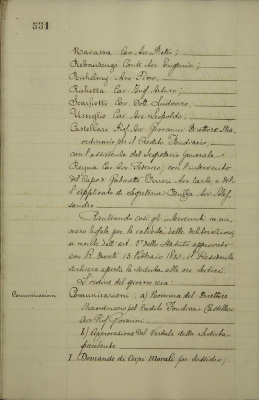 531
Navassa Cav. Avv. Pietro;
Rebaudengo Conte Avv. Eugenio;
Richelmy Avv. Pino;
Richetta Cav. Ing. Arturo;
Scarfiotti Cav. Dott. Ludovico;
Usseglio Cav. Avv. Leopoldo;
Castellari Prof. Avv. Giovanni Direttore Stra-
ordinario pel Credito Fondiario;
con l'assistenza del Segretario Generale
Cav. Avv. Federico; con l'intervento
del Capo di Gabinetto Avv. Carlo, e del-
l'Applicato di Segreteria Avv. Ales-
sandro.
Risultando così gli intervenuti in nu-
mero legale per la validità delle deliberazioni
a mente dell'art. 5° dello Statuto approvato
con R. Decreto 13 Febbraio, il Presidente
dichiara aperta la seduta alle ore dieci.
L'ordine del giorno reca:
Comunicazioni
Comunicazioni: a) Rinuncia del Direttore
Straordinario pel Credito Fondiario Castellari
Avv. Prof. Giovanni
b) Approvazione del Verbale della Seduta
precedente
I. Domande di Corpi Morali per Sussidio;